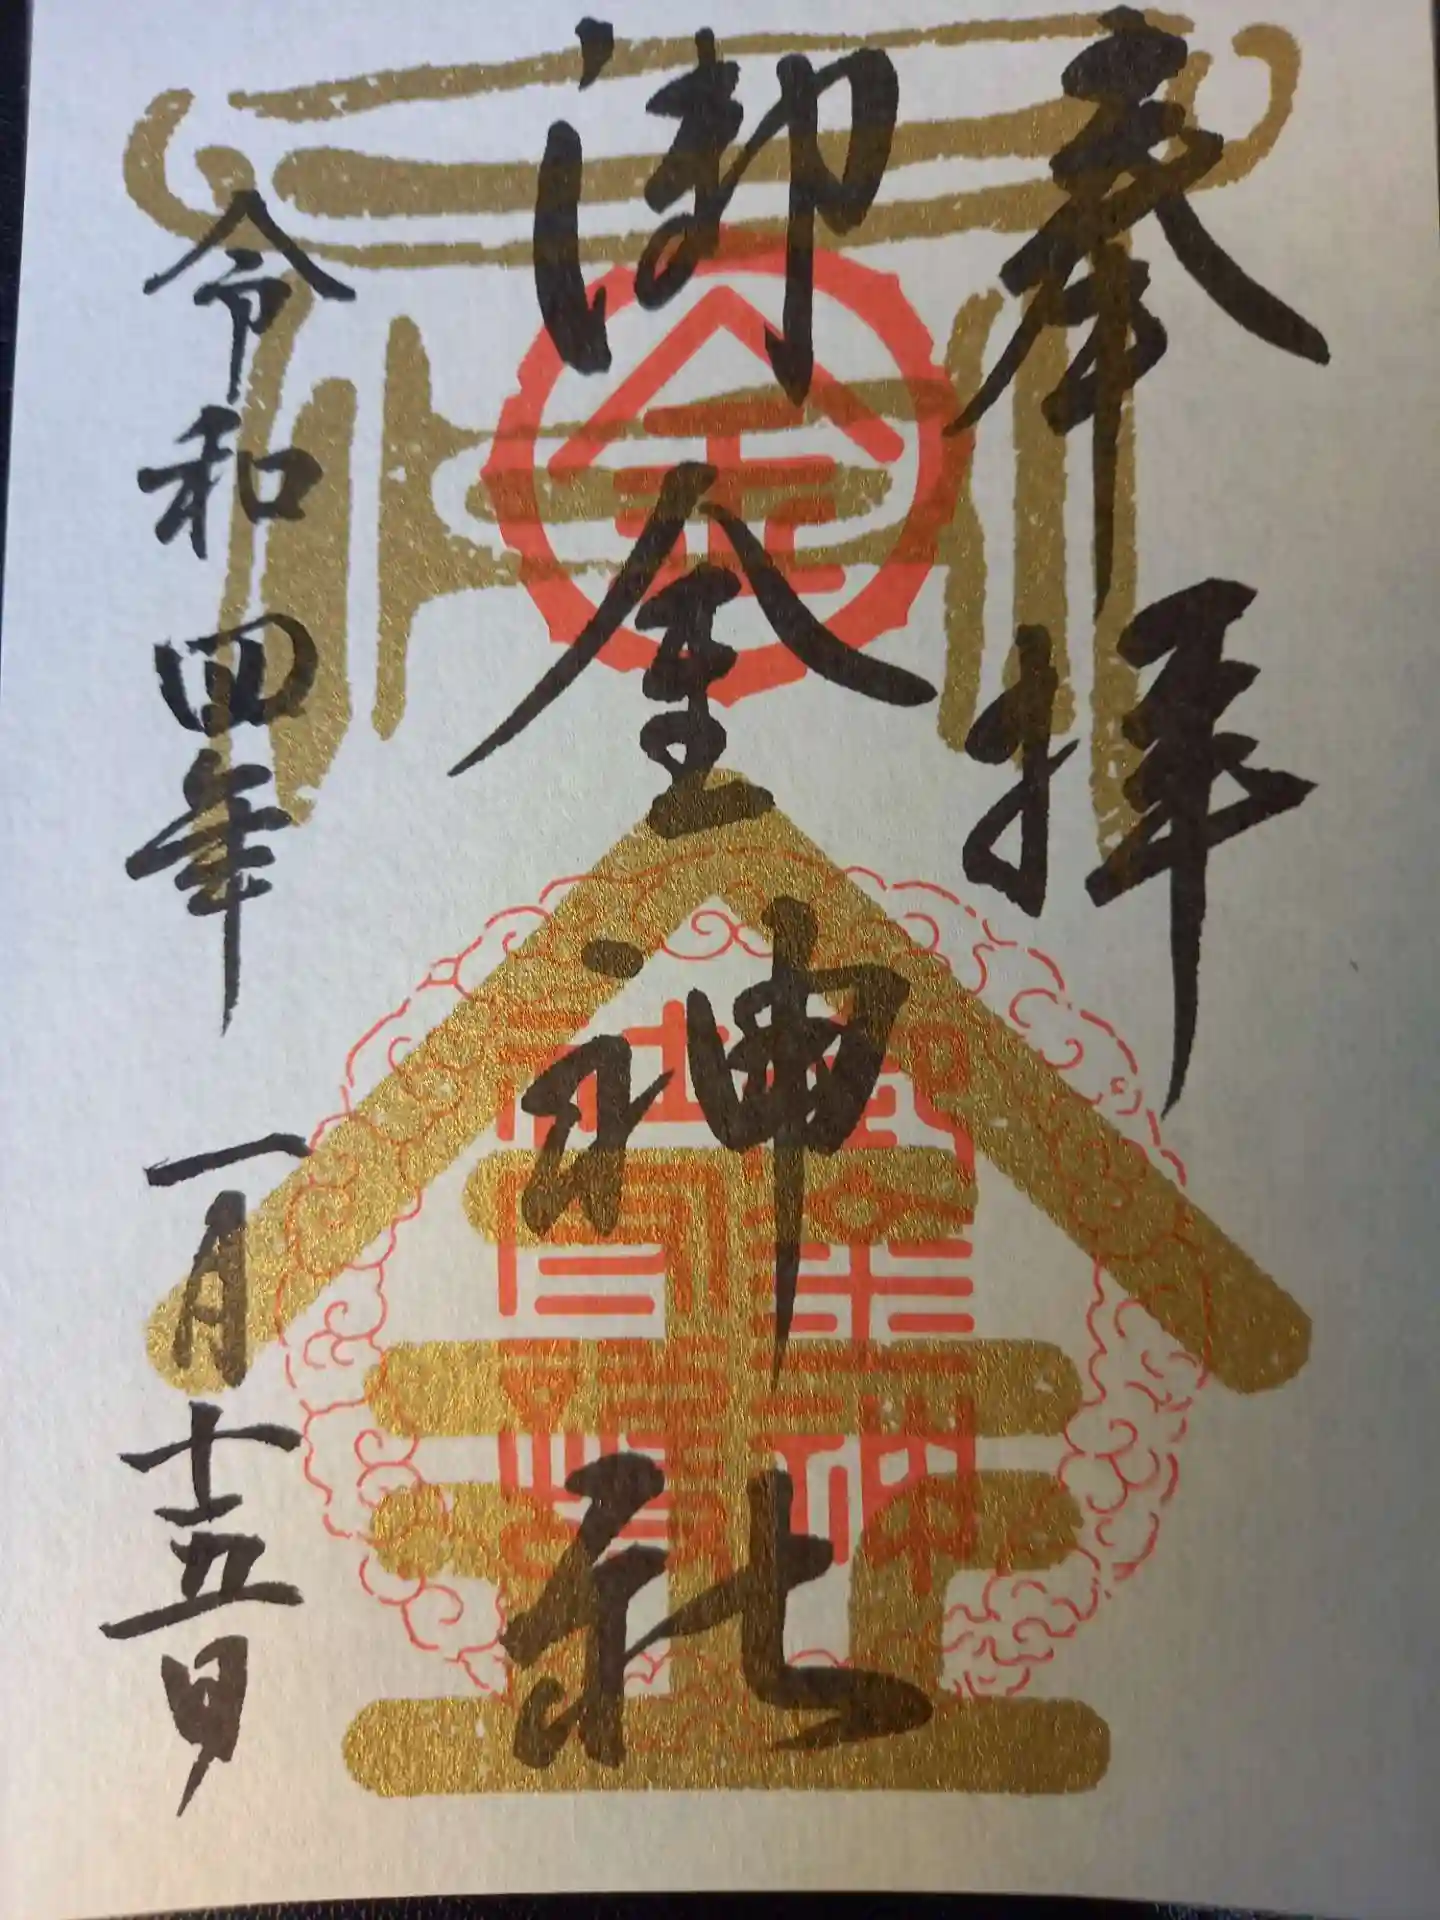 奉拝
御金神社
令和四年一月十五日
金
御金神
社